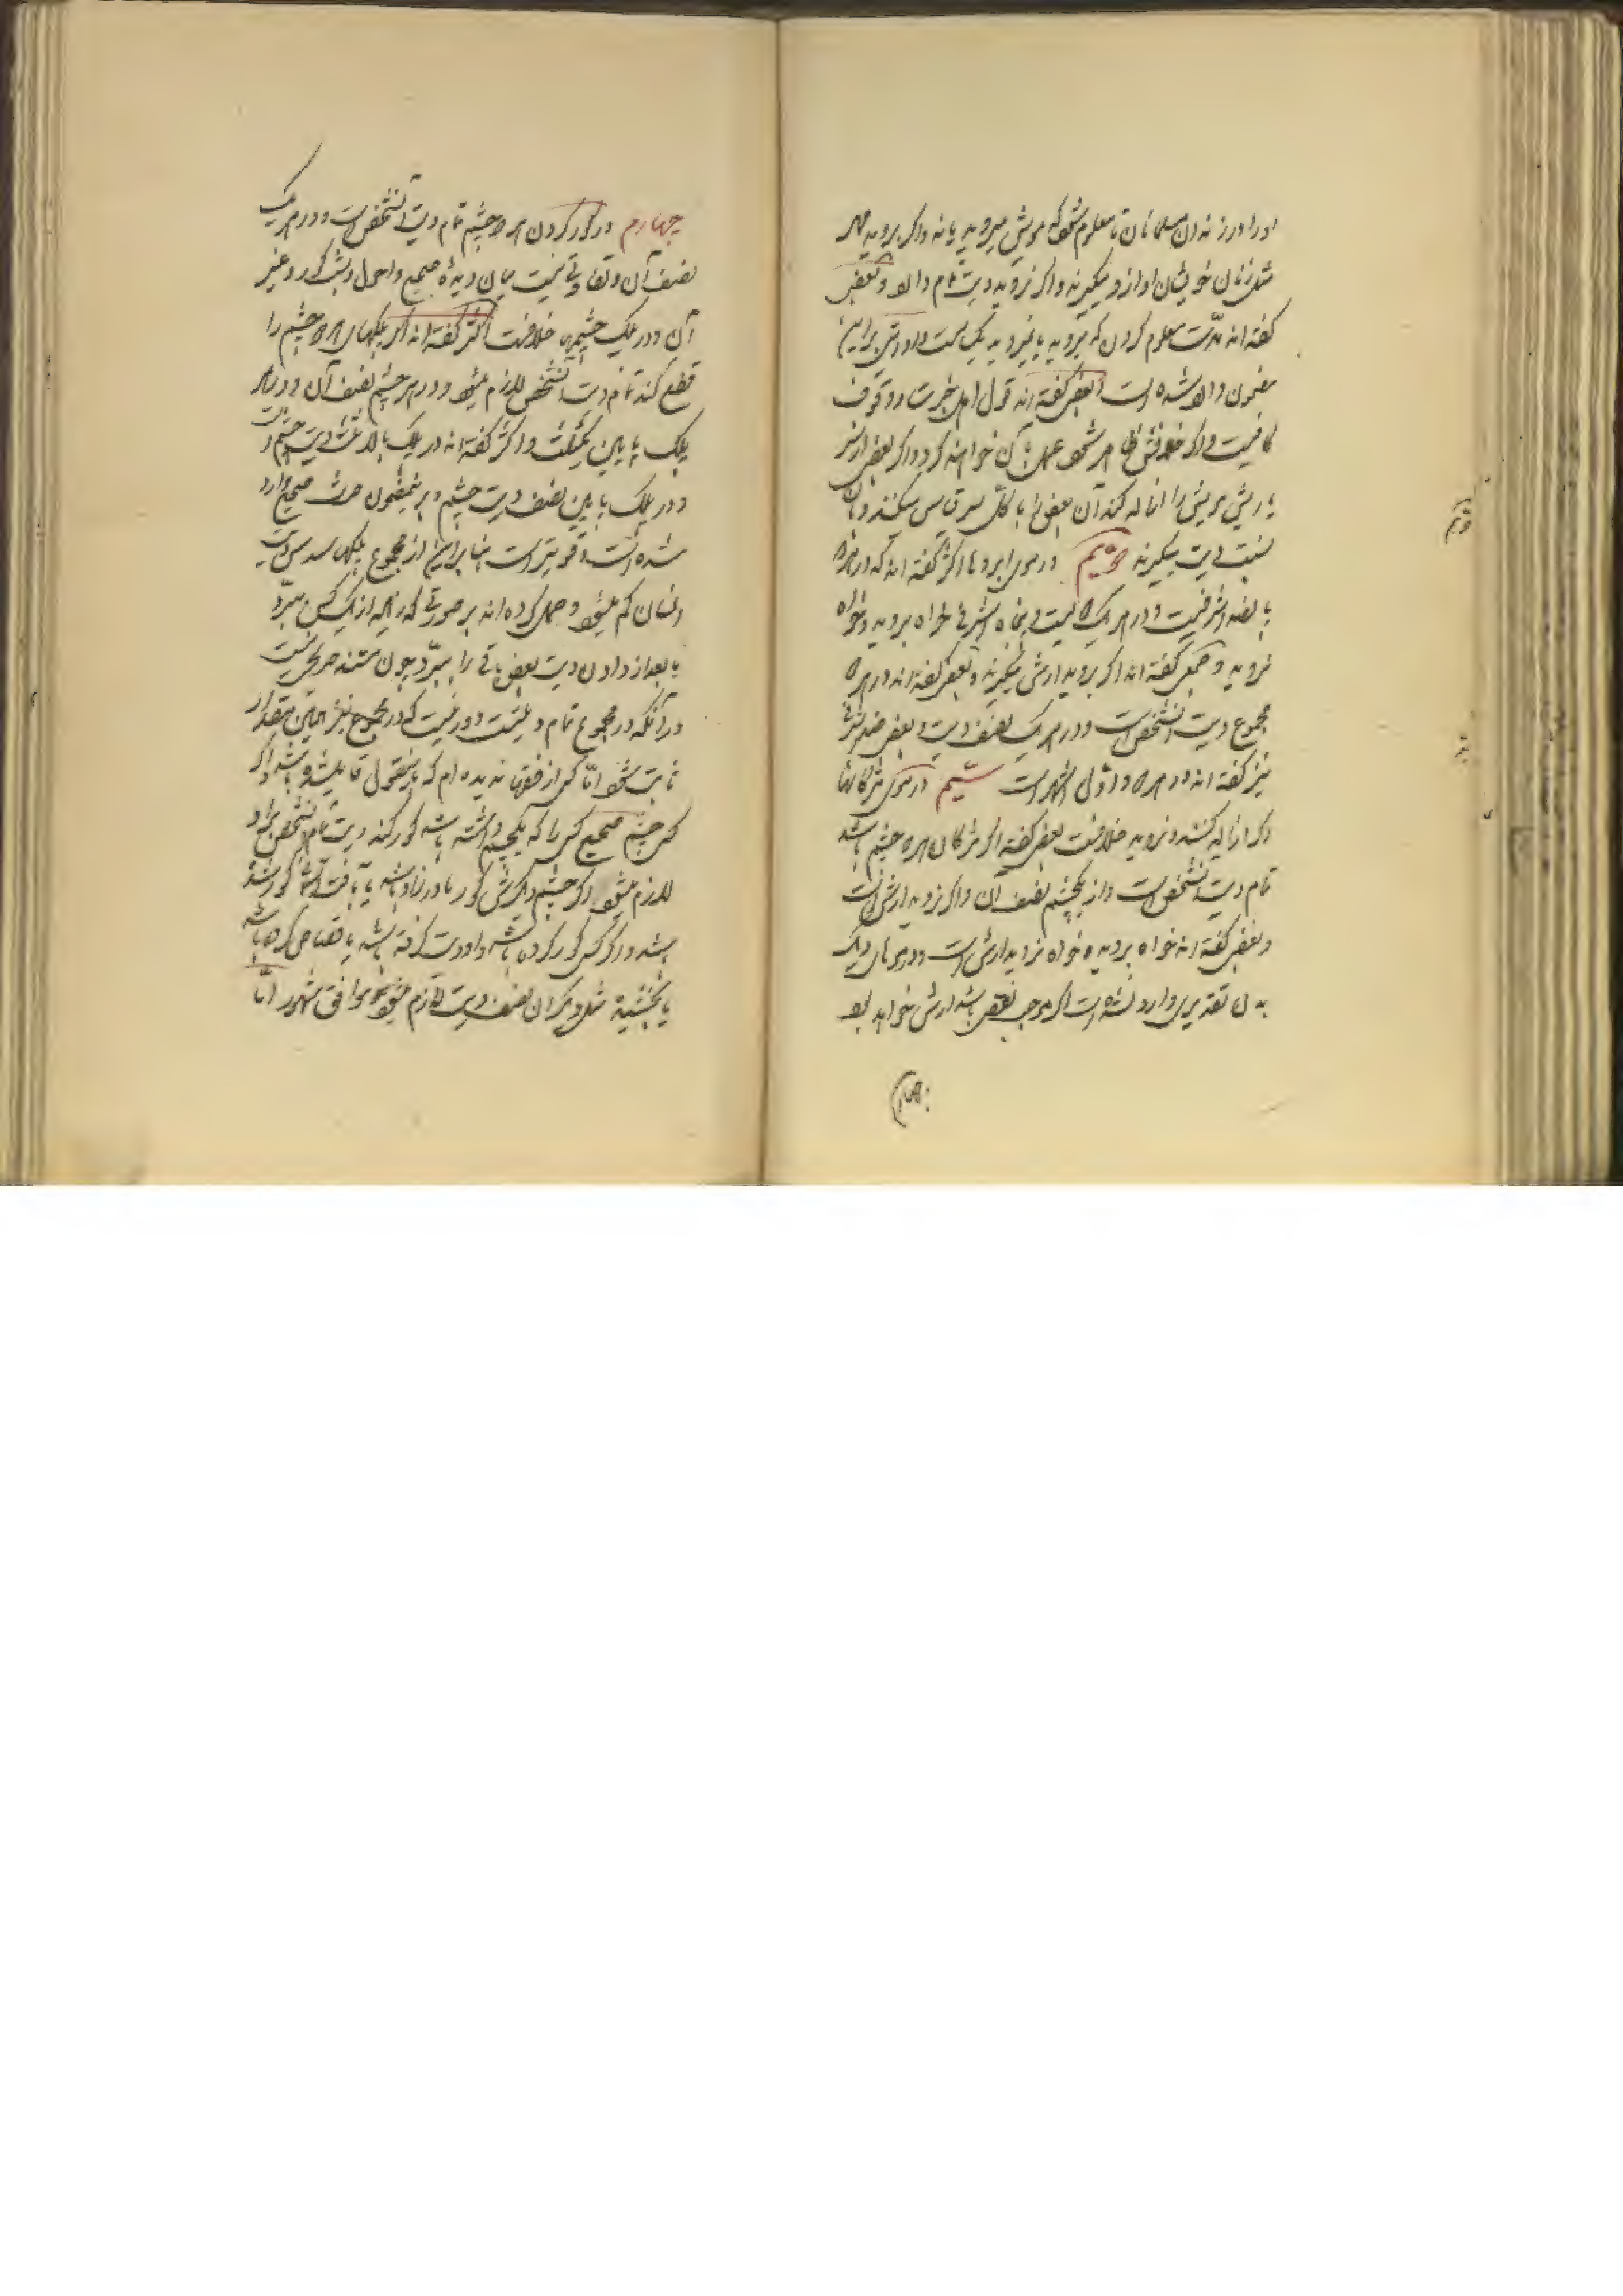 او را در زندان مسلمانان تا معلوم شود که مویش میروید یا نه و اگر بروید مهر
مثل زنان خویشان او از او میگیرند و اگر نروید دیت تمام دارد و بعضی
گفته اند مدت معلوم کردن که بروید یا نروید یک سالست و روایتی بر این
مضمون وارد شده است و بعضی گفته اند قول اهل خبرت و وقوف
کافیست و اگر خلافش ظاهر شود عمل بآن خواهند کرد و اگر بعض از سر
یا ریش مویش را ازاله کند آن بعض را با کل سر قیاس میکنند و بآن
نسبت دیت میگیرند دویم در موی ابروها اکثر گفته اند که در هر دو
پانصد اشرفیست و در هر یک دویست و پنجاه اشرفی خواه بروید و خواه
نروید و جمعی گفته اند اگر بروید ارش میگیرند و بعضی گفته اند در هر دو
مجموع دیت آنشخص است و در هر یک نصف دیت و بعضی صد اشرفی
نیز گفته اند در هر دو و اول اشهر است سیم در موی مژگانها
اگر ازاله کنند و نروید خلافست بعضی گفته اند اگر مژگان هر دو چشم باشد
تمام دیت آنشخص است و از یکچشم نصف آن و اگر نروید ارش است
و بعضی گفته اند خواه بروید و خواه نروید ارش است و در موهای دیگر
بدن تقدیری وارد نشده است اگر موجب نقص باشد ارش خواهد بود
چهارم در کور کردن هر دو چشم تمام دیت آنشخص است و در هر یک
نصف آن و تفاوتی نیست میان دیده صحیح و احول و شب کور و غیر
آن و در پلک چشمها خلافست اکثر گفته اند اگر پلکهای هر دو چشم را
قطع کند تمام دیت آنشخص لازم میشود و در هر چشم نصف آن و در هر
پلک پایین یکثلث و اکثر گفته اند در پلک بالا ثلث دیت چشم است
و در پلک پایین نصف دیت چشم و بر این مضمون حدیث صحیح وارد
شده است و قویتر است بنا بر این از مجموع پلکها سدس دیت
انسان کم میشود و حمل کرده اند بر صورتی که همه از یک کس ببرد
یا بعد از دادن دیت بعض باقی را ببرد چون مستند صریحی نیست
در آنکه در مجموع تمام دیتست و دور نیست که در مجموع نیز همین مقدار
ثابت شود اما کسی از فقها ندیده ام که باینقول قایل شده باشد و اگر
کسی چشم صحیح کسی را که یکچشم داشته باشد کور کند دیت تمام آنشخص بر او
لازم میشود اگر چشم دیگرش کور مادرزاد باشد یا بآفت آسمانی کور شده
باشد و اگر کسی کور کرده باشد و او دیت گرفته باشد یا قصاص کرده باشد
یا بخشیده مثل دیگران نصف دیت لازم میشود موافق مشهور اما